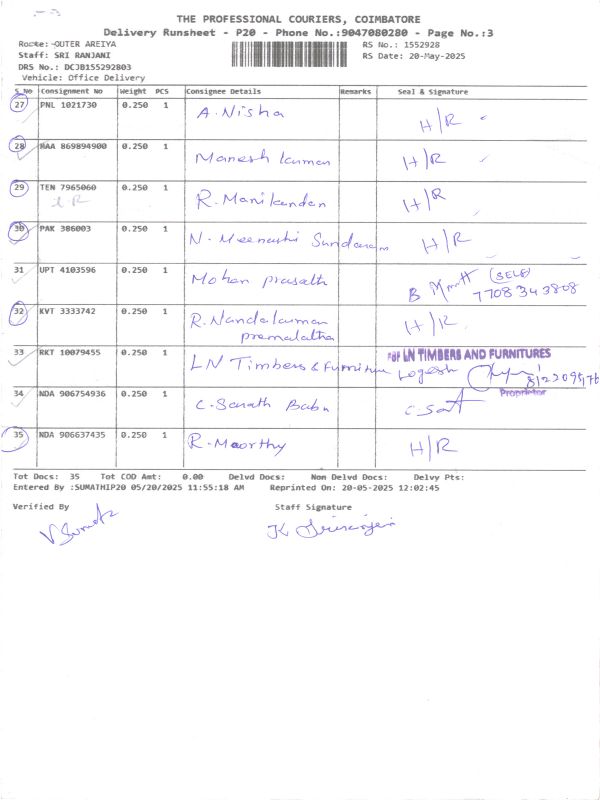 THE PROFESSIONAL COURIERS, COIMBATORE
Delivery Runsheet - P20 - Phone No.:9047080280 - Page No.:3
Route:-OUTER AREIYA
RS No.: 1552928
Staff: SRI RANJANI
RS Date: 20-May-2025
DRS No.: DCJB155292803
Vehicle: Office Delivery
S.No Consignment No Weight PCS Consignee Details Remarks Seal & Signature
27 PNL 1021730 0.250 1 A.Nisha H/R
28 MAA 869894900 0.250 1 Manesh kumar H/R
29 TEN 7965060 0.250 1 R.Manikandan H/R
30 PAK 386003 0.250 1 N. Meenashi Sundaram H/R
31 UPT 4103596 0.250 1 Mohan prasath B (SELF)
7708343808
32 KVT 3333742 0.250 1 R.Nandakumar H/R
premalatha
33 RKT 10079455 0.250 1 LN Timbers & furniture Logesh
FOR LN TIMBERS AND FURNITURES
Proprietor
34 NDA 906754936 0.250 1 C.Sarath Babu
35 NDA 906637435 0.250 1 R.Moorthy H/R
Tot Docs: 35 Tot COD Amt: 0.00 Delvd Docs: Non Delvd Docs: Delvy Pts:
Entered By :SUMATHIP20 05/20/2025 11:55:18 AM Reprinted On: 20-05-2025 12:02:45
Verified By Staff Signature